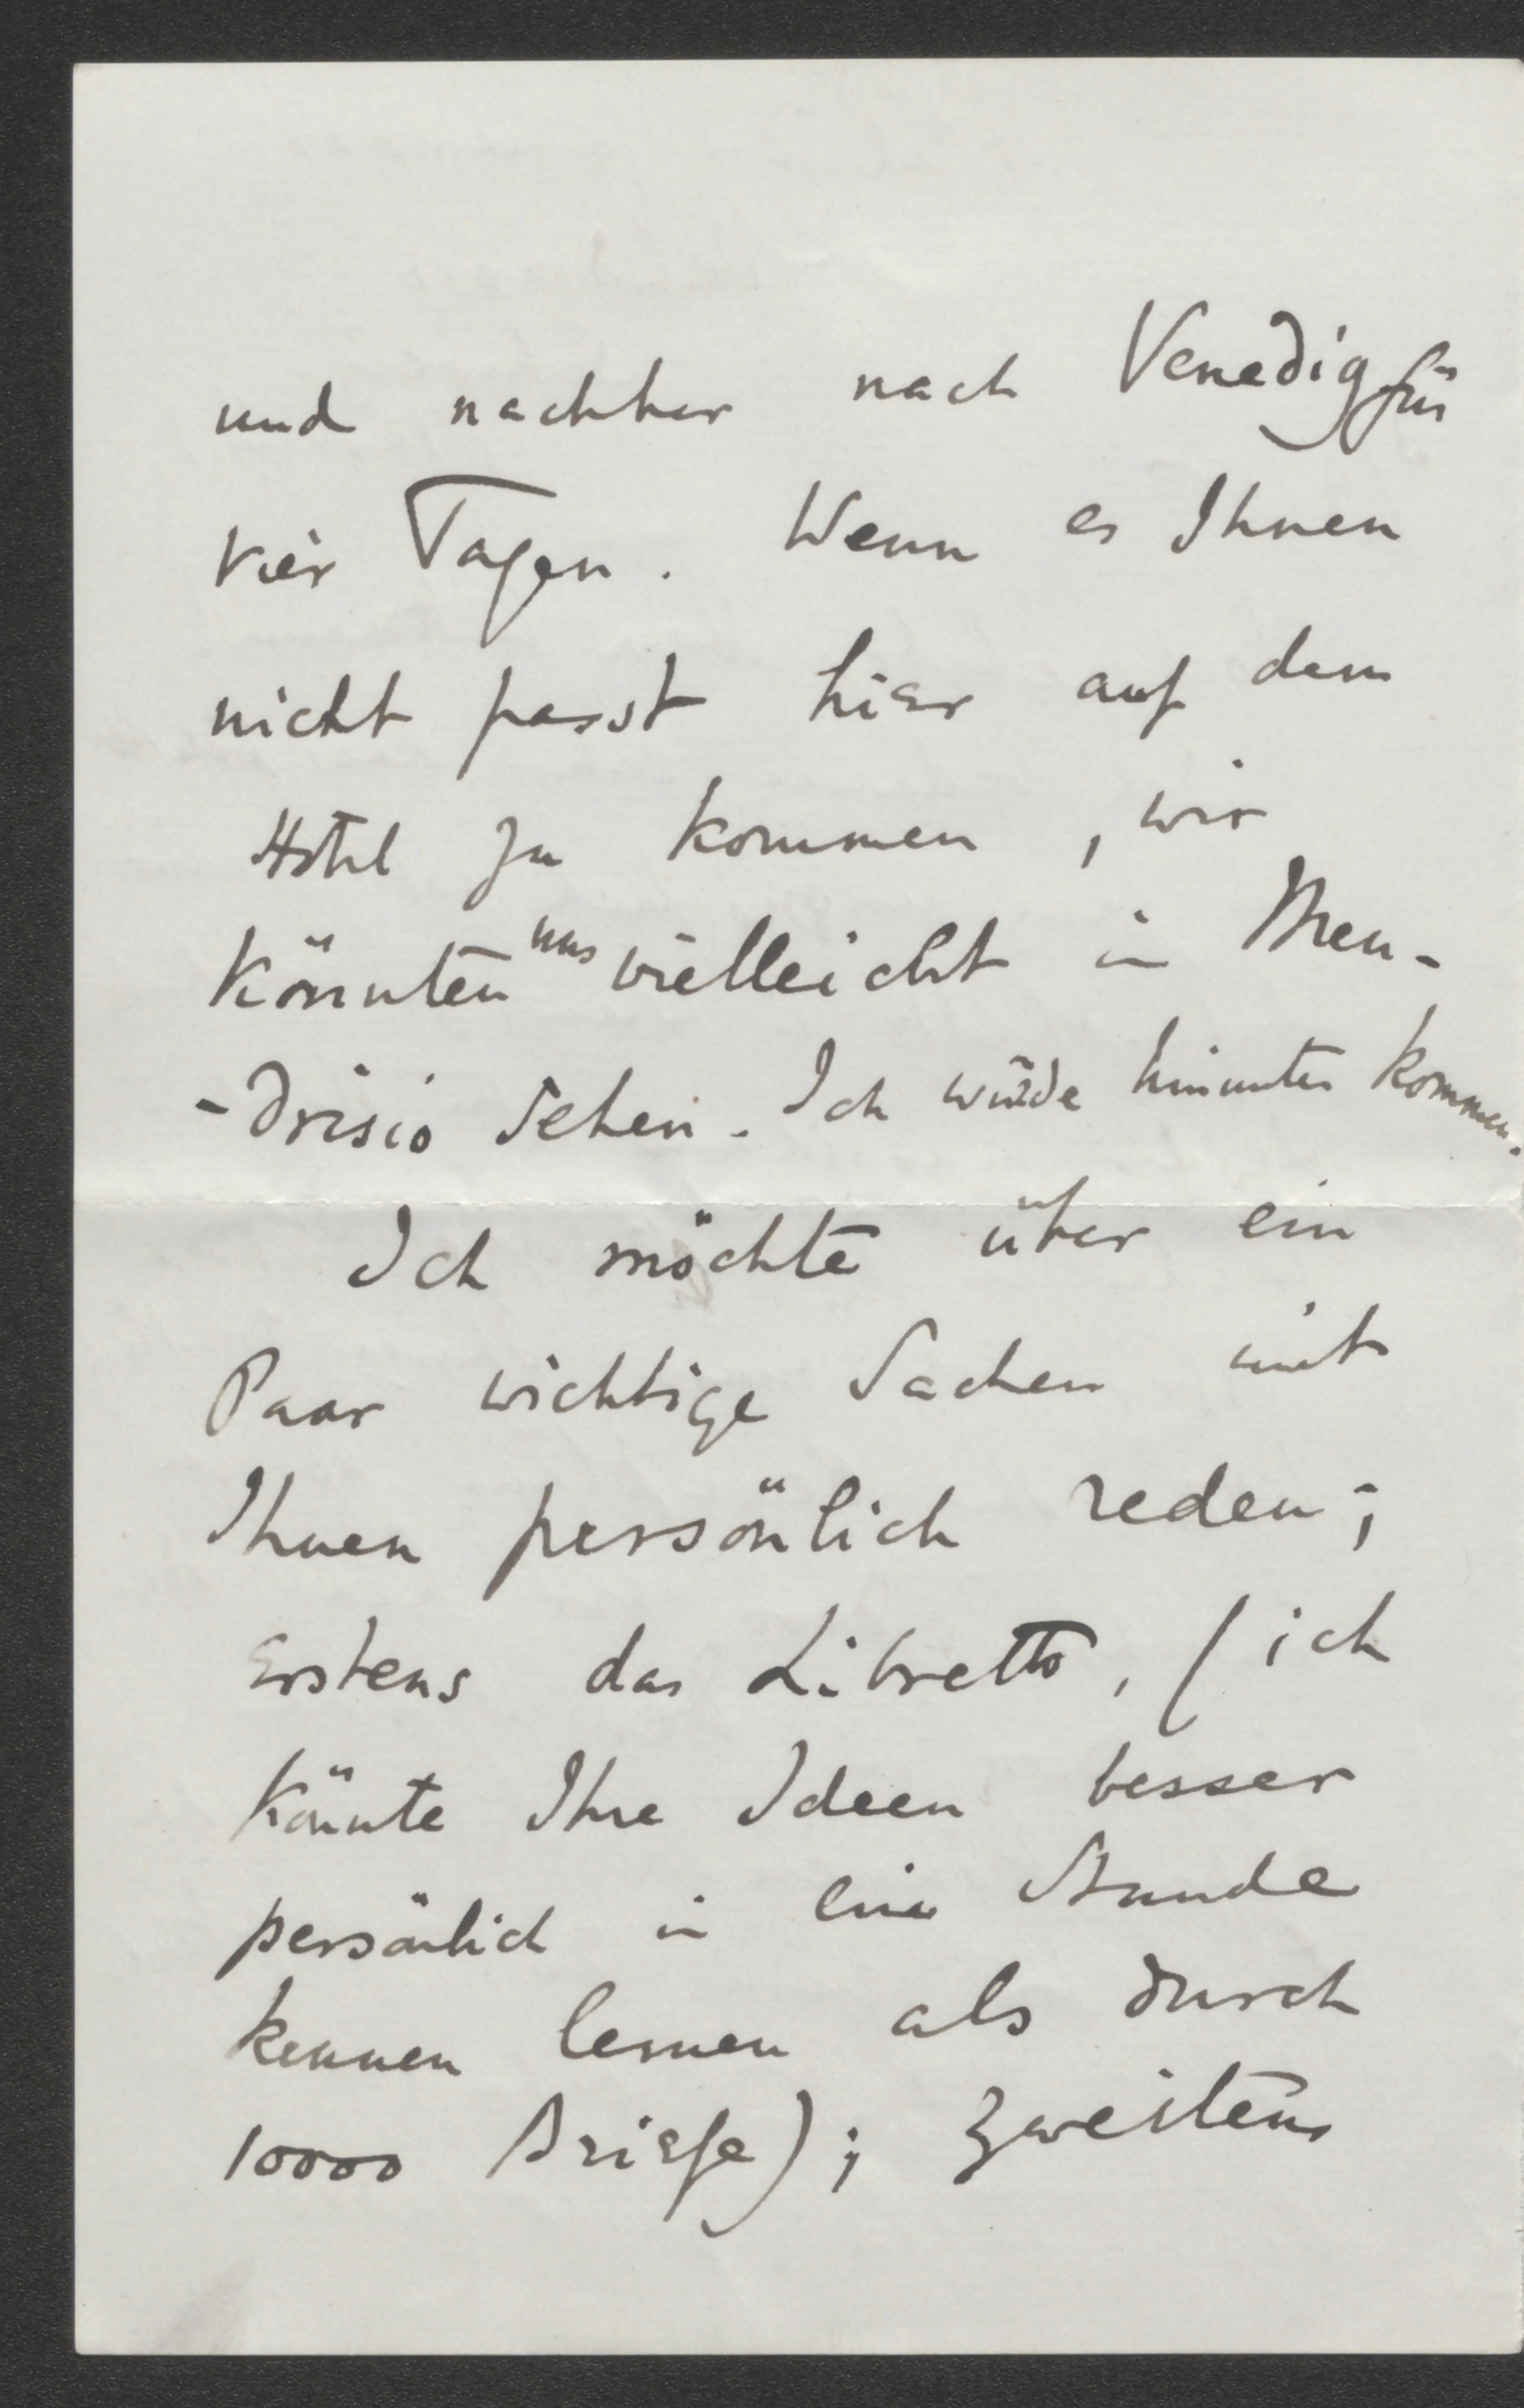 und nachher nach Venedig für
vier Tagen. Wenn es Ihnen
nicht passt hier auf dem
Hotel zu kommen, wir
könnten uns vielleicht in Men-
-drisio sehen. Ich würde hinunter kommen.
Ich möchte über ein
Paar wichtige Sachen mit
Ihnen persönlich reden;
erstens das Libretto, (ich
könnte Ihre Ideen besser
persönlich in eine Stunde
kennen lernen als durch
10000 Briefe); zweitens